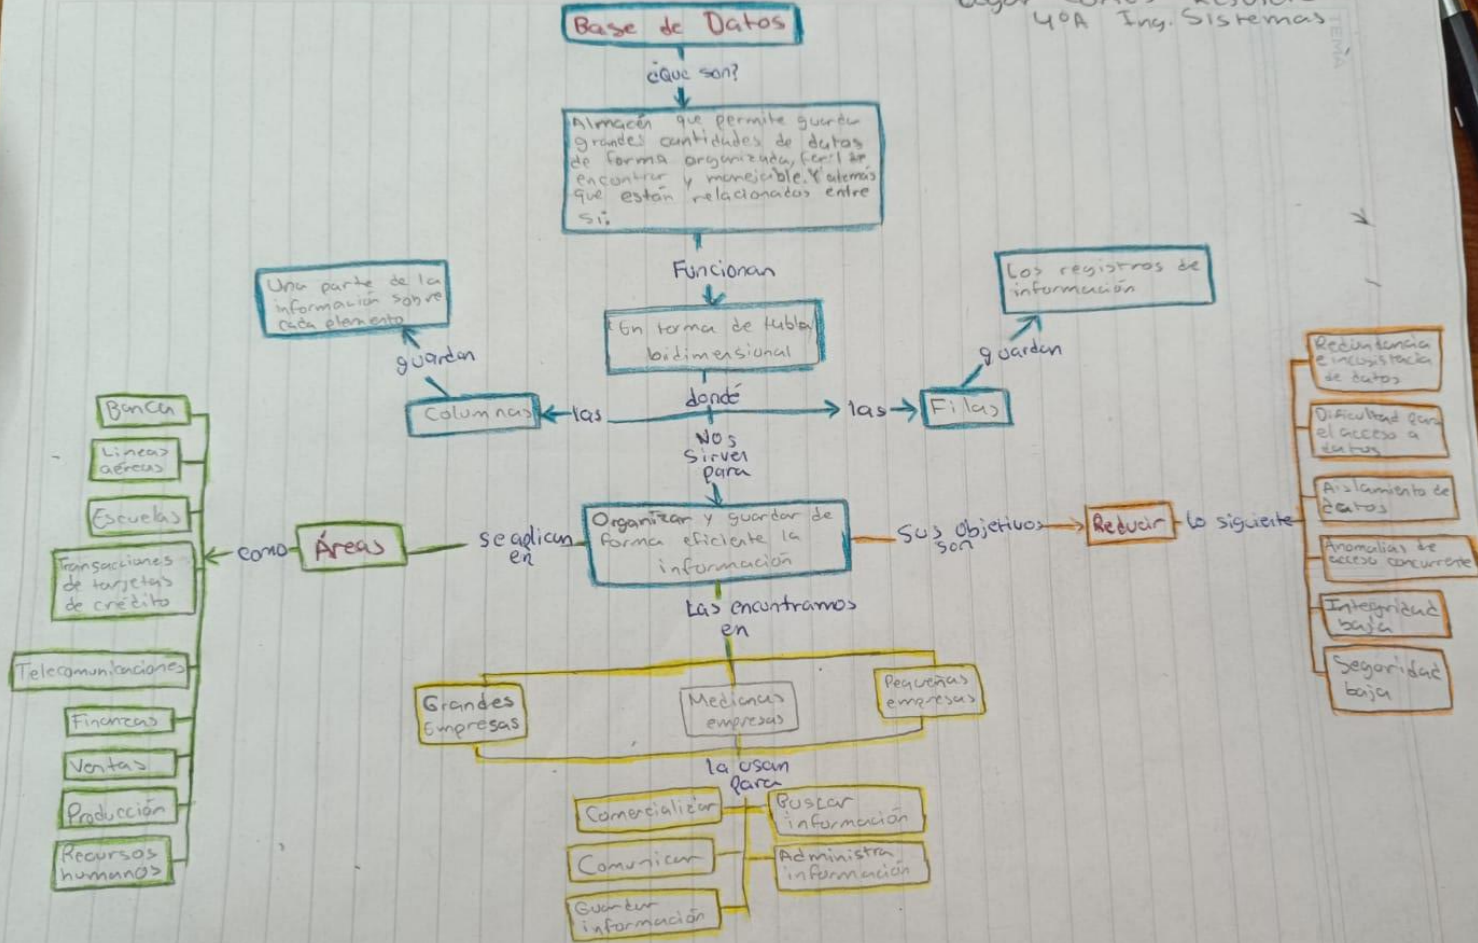 4°A Ing. Sistemas
Base de Datos
¿Que son?
Almacén que permite guardar
grandes cantidades de datos
de forma organizada, fácil de
encontrar y manejable. Y además
que están relacionados entre
si.
Funcionan
En forma de tabla
bidimensional
donde
las
Columnas
guardan
Una parte de la
información sobre
cada elemento
las
Filas
guardan
Los registros de
información
Nos
sirven
para
Organizar y guardar de
forma eficiente la
información
se aplican
en
Áreas
como
Banca
Lineas
aéreas
Escuelas
Transacciones
de tarjetas
de crédito
Telecomunicaciones
Finanzas
Ventas
Producción
Recursos
humanos
Sus objetivos
son
Reducir
Lo siguiente
Redundancia
e
de datos
Dificultad para
el acceso a
datos
Aislamiento de
datos
Anomalias de
acceso concurrente
Integridad
baja
Seguridad
baja
Las encontramos
en
Grandes
Empresas
Medianas
empresas
Pequeñas
empresas
la usan
para
Comercializar
Buscar
información
Comunicar
Administra
información
Guardar
información